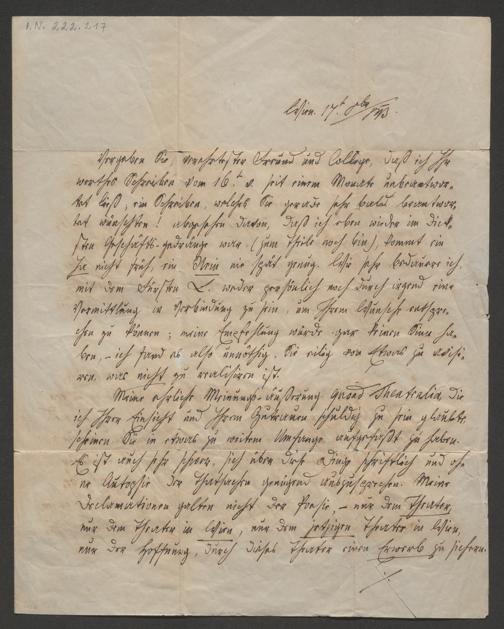 I.N. 222.217
Wien. 17t. /43.
Vergeben Sie, verehrtester Freund und College, daß ich Ihr
werthes Schreiben vom 16t. v. seit einem Monate unbeantwor-
tet ließ, ein Schreiben, welches Sie gerade sehr bald beantwor-
tet wünschten! abgesehen davon, daß ich eben wieder im dick-
sten Geschäfts-gedränge war (zum Theile noch bin), kommt ein
Ja nicht früh, ein Nein nie spät genug. Wie sehr bedaure ich
mit dem Fürsten L. weder persönlich noch durch irgend eine
Vermittlung in Verbindung zu sein, um Ihrem Wunsche entspre-
chen zu können; meine Empfehlung würde gar keinen Sinn ha-
ben, – ich fand es also unnöthig, Sie eilig von Etwas zu avisi-
ren, was nicht zu realisiren ist.
Meine ehrliche Meinungs-äußerung quoad Theatralia, die
ich Ihrer Einsicht und Ihrem Zutrauen schuldig zu sein glaubte,
scheinen Sie in etwas zu weitem Umfange aufgefaßt zu haben.
Es ist auch sehr schwer, sich über diese Dinge schriftlich und oh-
ne Autopsie der Thatsachen genügend auszusprechen. Meine
Declamationen galten nicht der Poesie, – nur dem Theater,
nur dem Theater in Wien, nur dem jetzigen Theater in Wien,
nur der Hoffnung, durch dieses Theater einen Erwerb zu sichern.